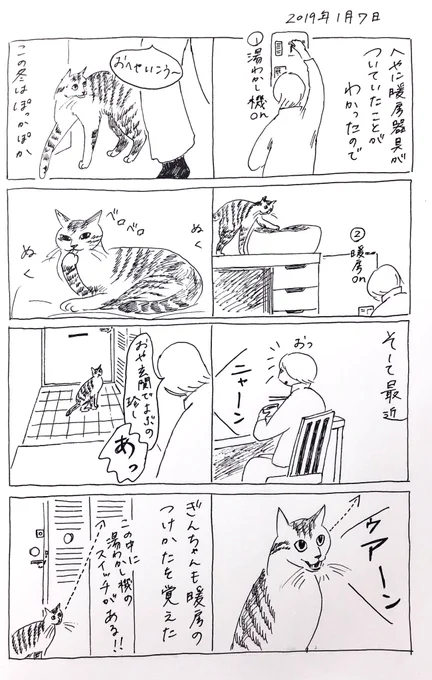 2019年1月7日
へやに暖房器具が
ついていたことが
わかったので
①
湯わかし機
on
おへやいこう〜
この冬はぽっかぽか
②
暖房
on
ぬく
ベロベロ
ぬく
そして最近
おっ
ニャーン
おや玄関でよぶの
珍し
あっ
ウアーン
ぎんちゃんも暖房の
つけかたを覚えた
この中に
湯わかし機の
スイッチがある!!